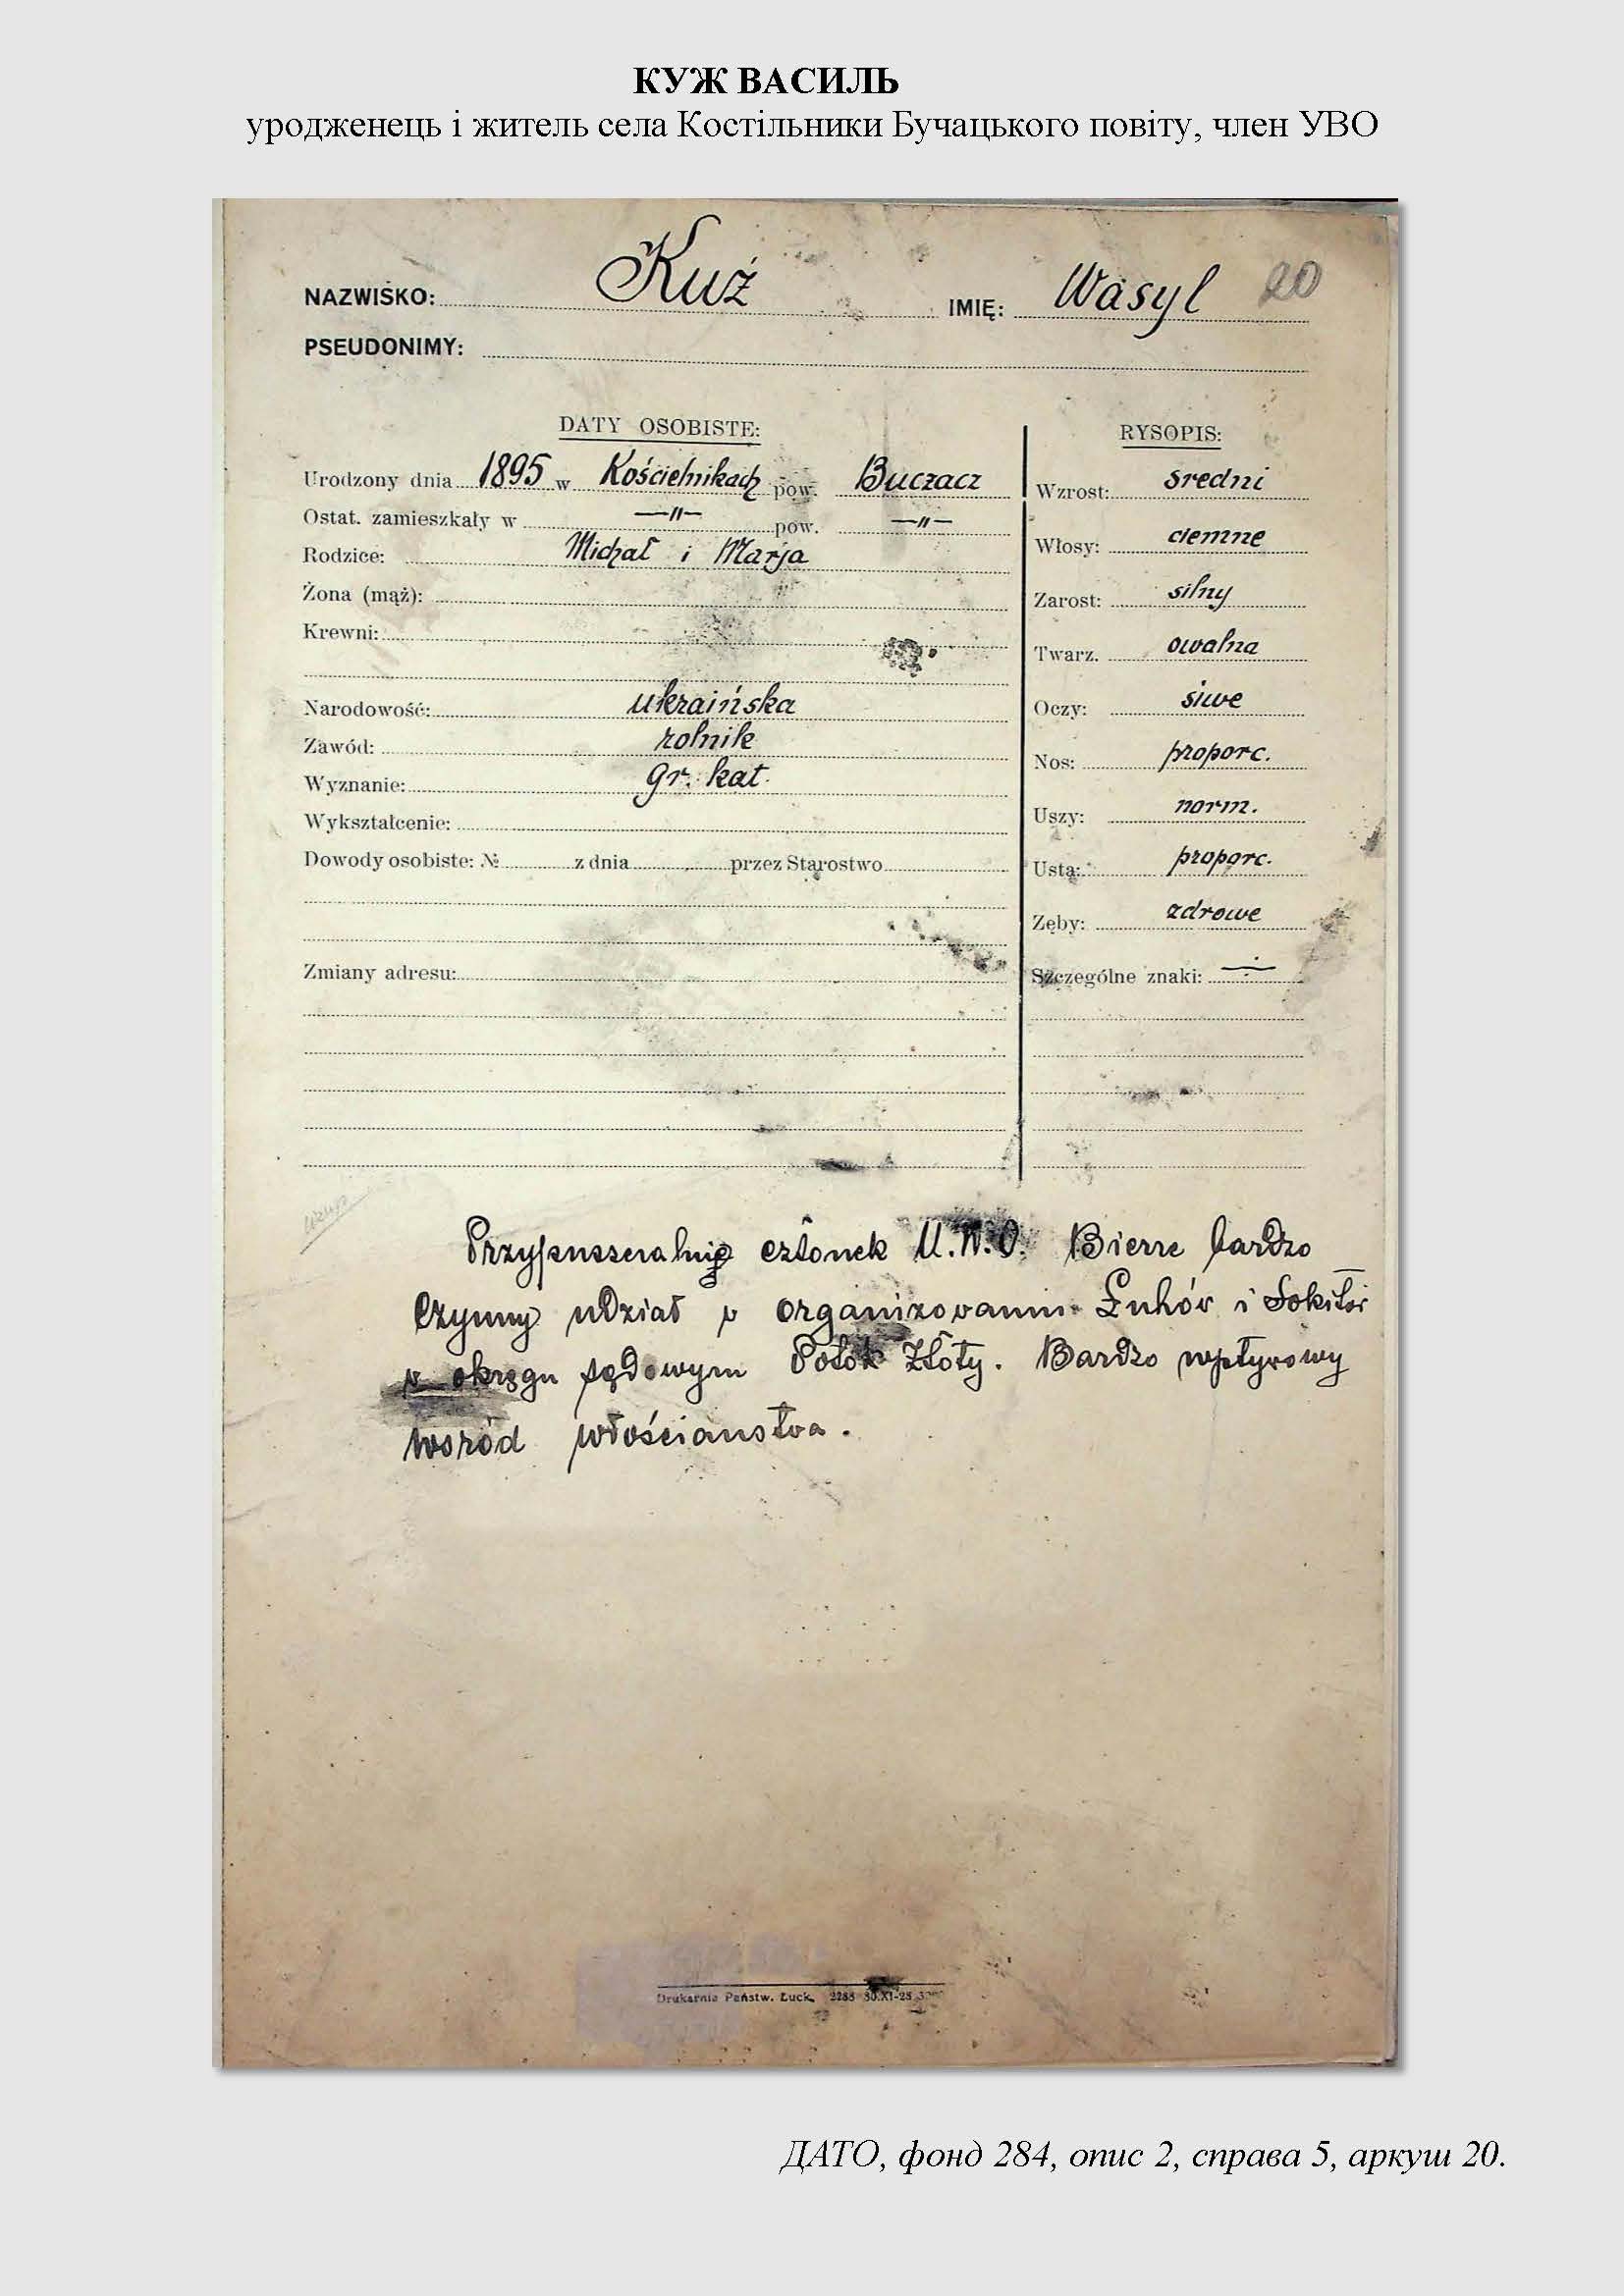 КУЖ ВАСИЛЬ
уродженець і житель села Костільники Бучацького повіту, член УВО
NAZWISKO: Kuź IMIĘ: Wasyl 20
PSEUDONIMY:
DATY OSOBISTE:
Urodzony dnia 1895 w Kościelnikach pow. Buczacz
Ostat. zamieszkały w —„— pow. —„—
Rodzice: Michał i Marja
Żona (mąż):
Krewni:
Narodowość: ukraińska
Zawód: rolnik
Wyznanie: gr. kat.
Wykształcenie:
Dowody osobiste: № z dnia przez Starostwo
Zmiany adresu:
RYSOPIS:
Wzrost: średni
Włosy: ciemne
Zarost: silny
Twarz. owalna
Oczy: siwe
Nos: proporc.
Uszy: norm.
Usta: proporc.
Zęby: zdrowe
Szczególne znaki: ÷
Przypuszczalnie członek U.W.O. Bierze bardzo
czynny udział w organizowaniu Łuhów i Sokiłów
w okręgu sądowym Potok Złoty. Bardzo wpływowy
wśród włościaństwa.
Drukarnia Państw. Łuck, 2288 30.XI-28
ДАТО, фонд 284, опис 2, справа 5, аркуш 20.